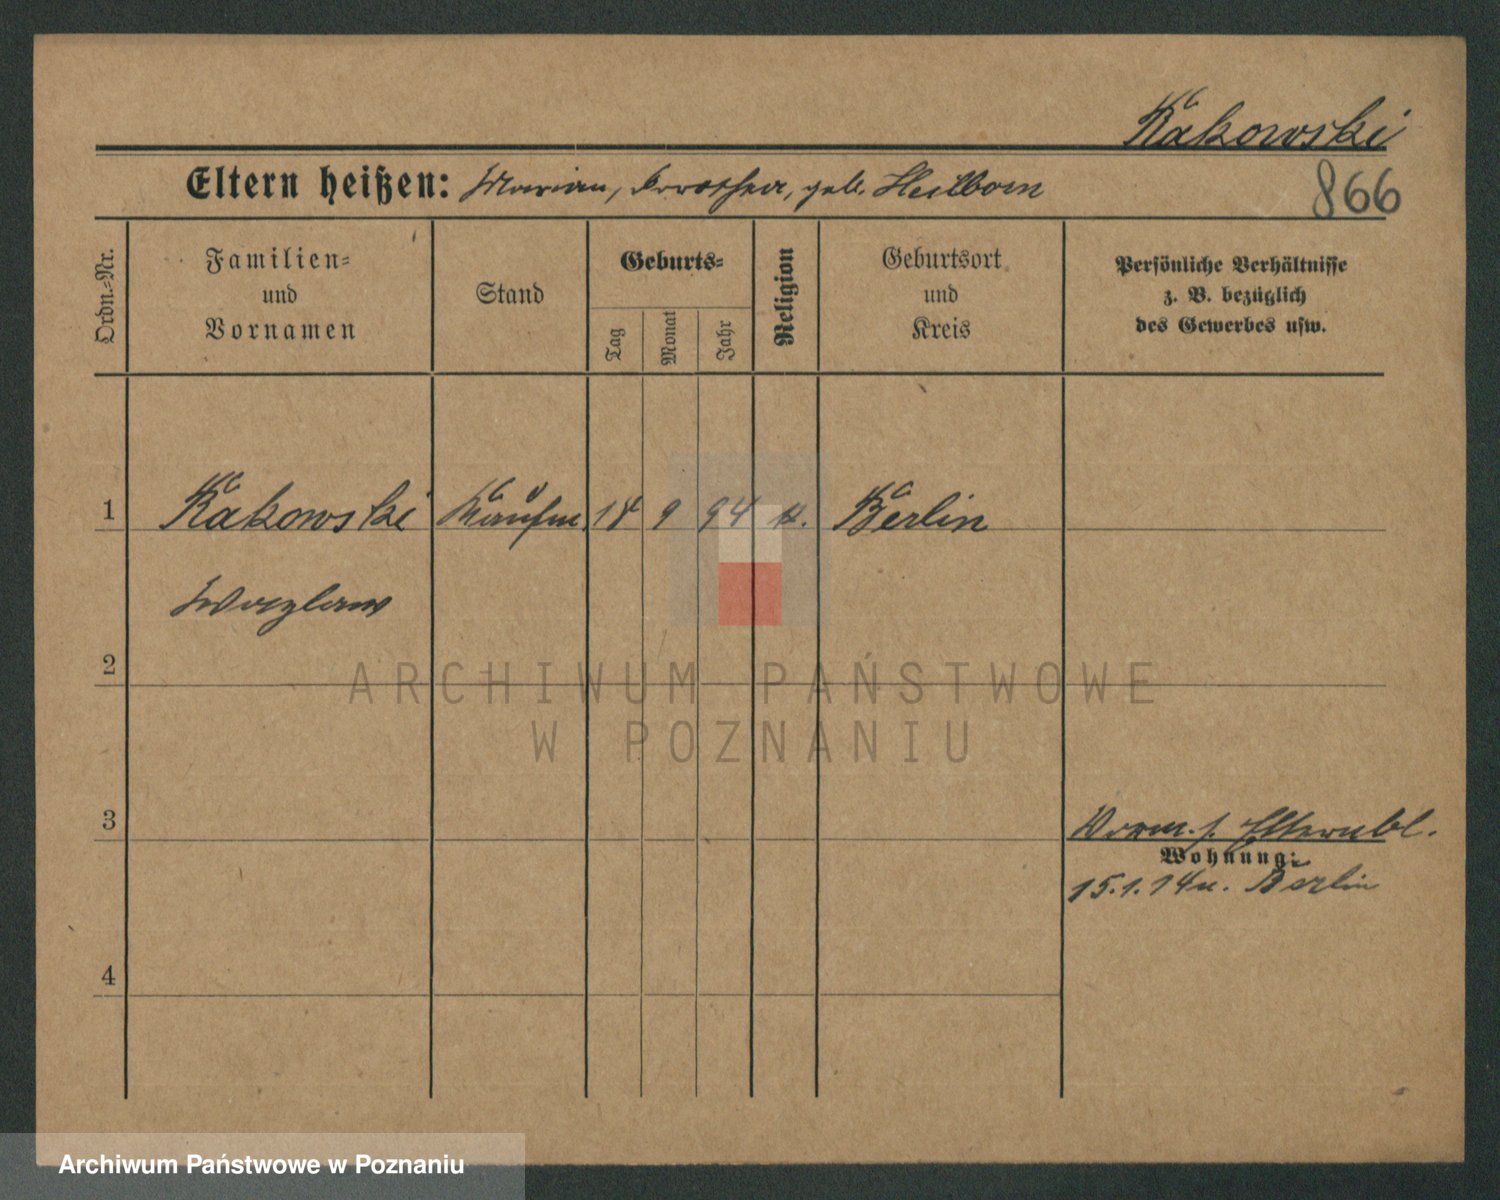 Kakowski
Eltern heißen: Marian, Dorothea, geb. Heilborn
866
Ordn.-Nr.
Familien-
und
Vornamen
Stand
Geburts-
Tag
Monat
Jahr
Religion
Geburtsort
und
Kreis
Persönliche Verhältnisse
z. B. bezüglich
des Gewerbes usw.
1 Kakowski Kaufm. 14 9 94 k. Berlin
Wazlaw
2
ARCHIWUM PAŃSTWOWE
W POZNANIU
3
Vorm. s. Elternbl.
Wohnung:
15.1.14 n. Berlin
4
Archiwum Państwowe w Poznaniu